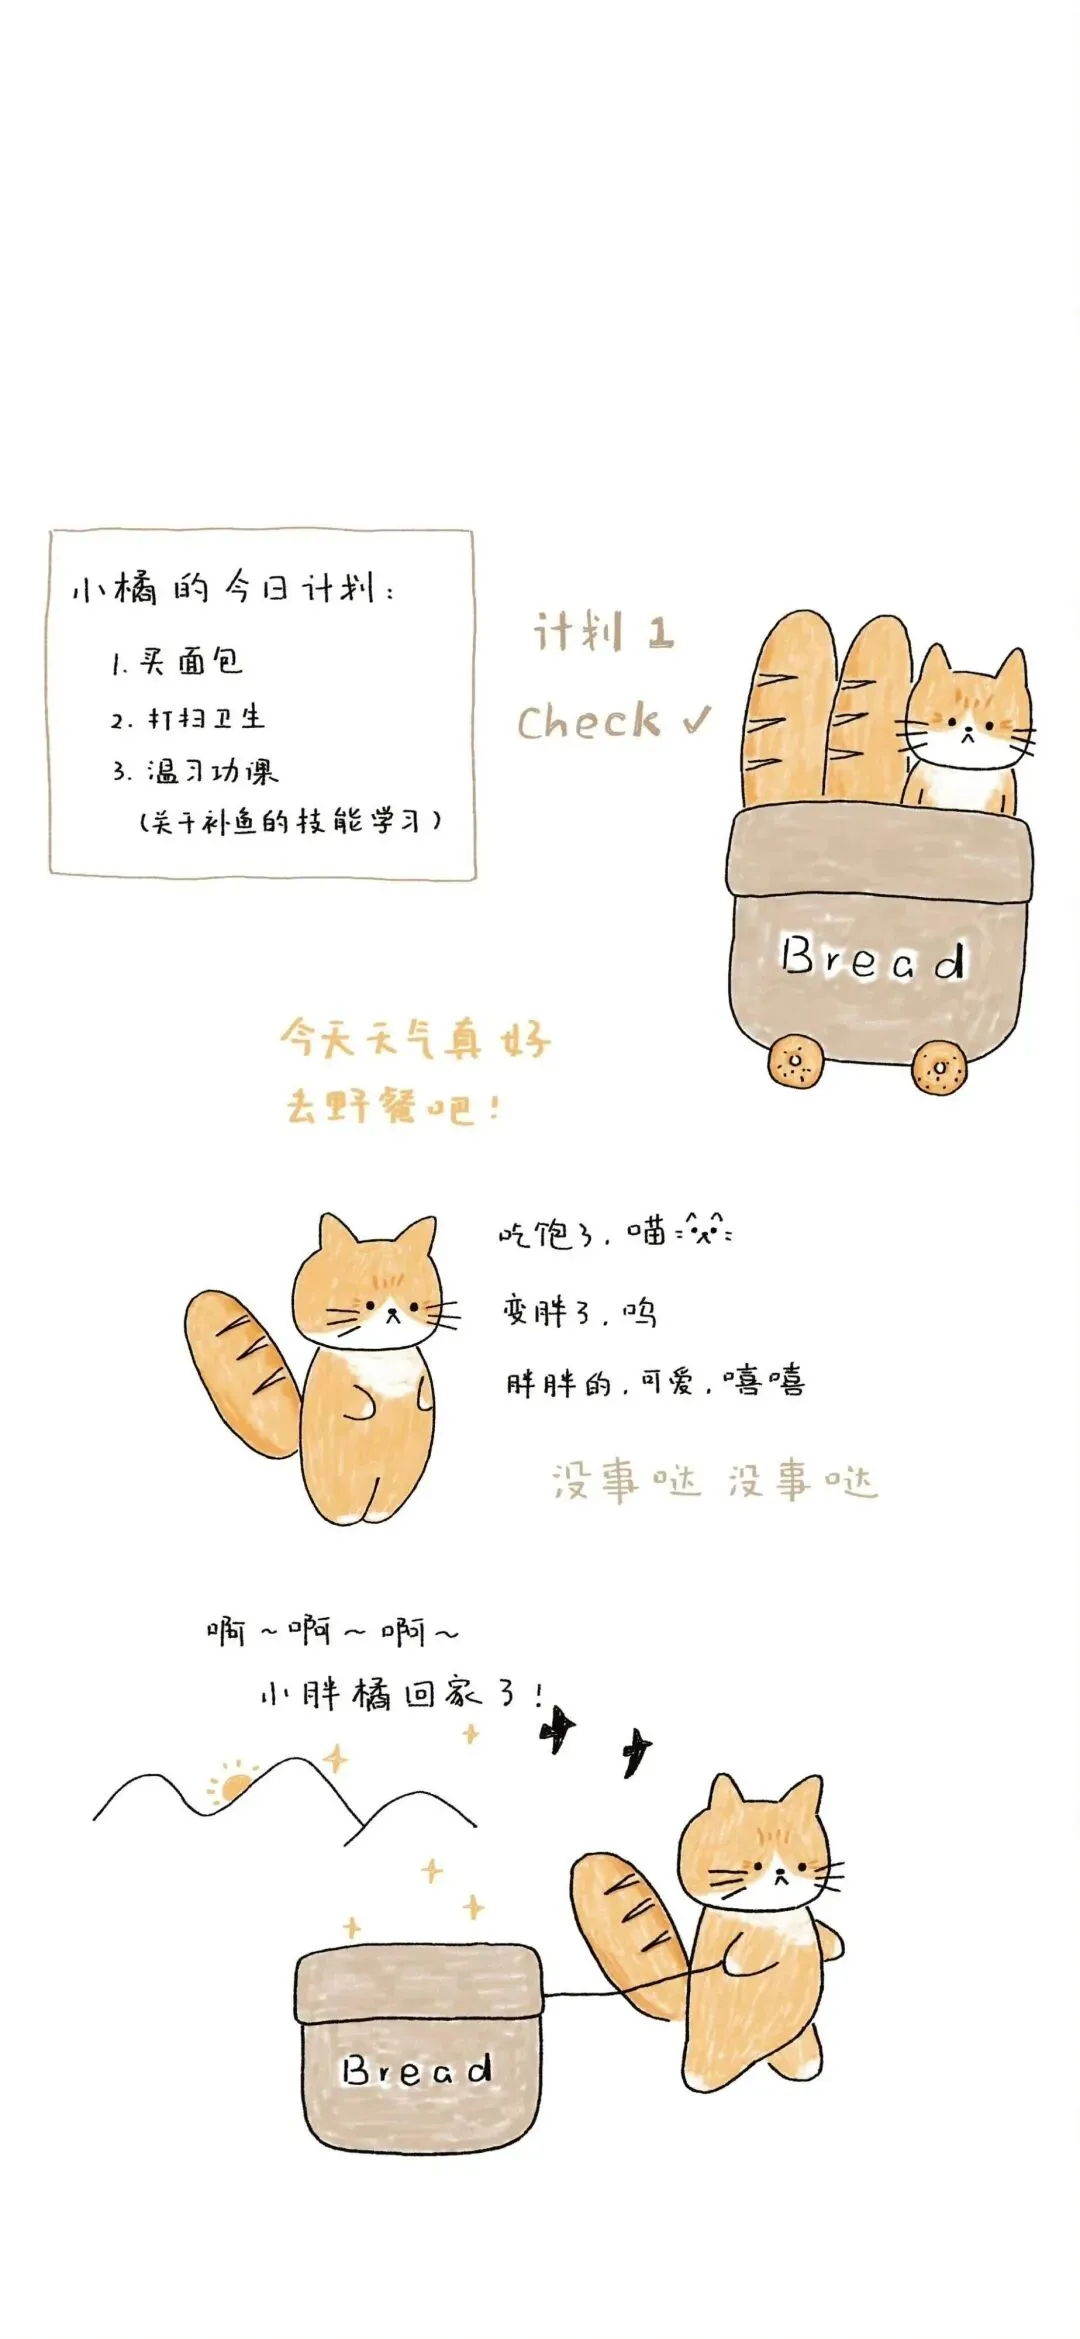 小橘的今日计划:
1. 买面包
2. 打扫卫生
3. 温习功课
(关于补鱼的技能学习)
计划 1
Check ✓
Bread
今天天气真好
去野餐吧!
吃饱了,喵
变胖了,呜
胖胖的,可爱,嘻嘻
没事哒 没事哒
啊~啊~啊~
小胖橘回家了!
Bread